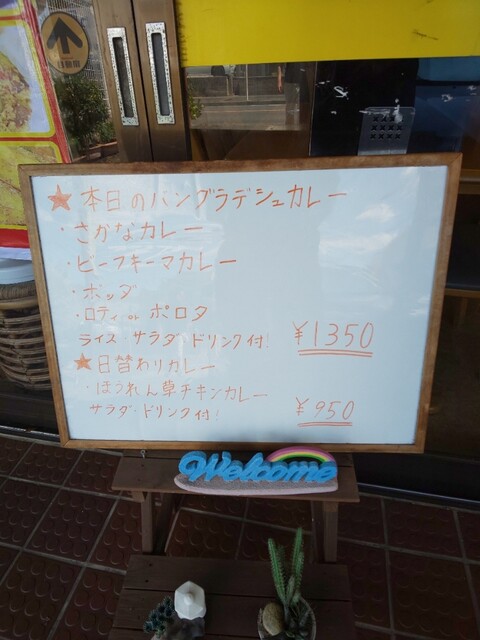 ★本日のバングラデシュカレー
・さかなカレー
・ビーフキーマカレー
・ボッダ
・ロティ or ポロタ
ライス サラダ ドリンク付! ¥1350
★日替わりカレー
・ほうれん草チキンカレー
サラダ・ドリンク付! ¥950
Welcome